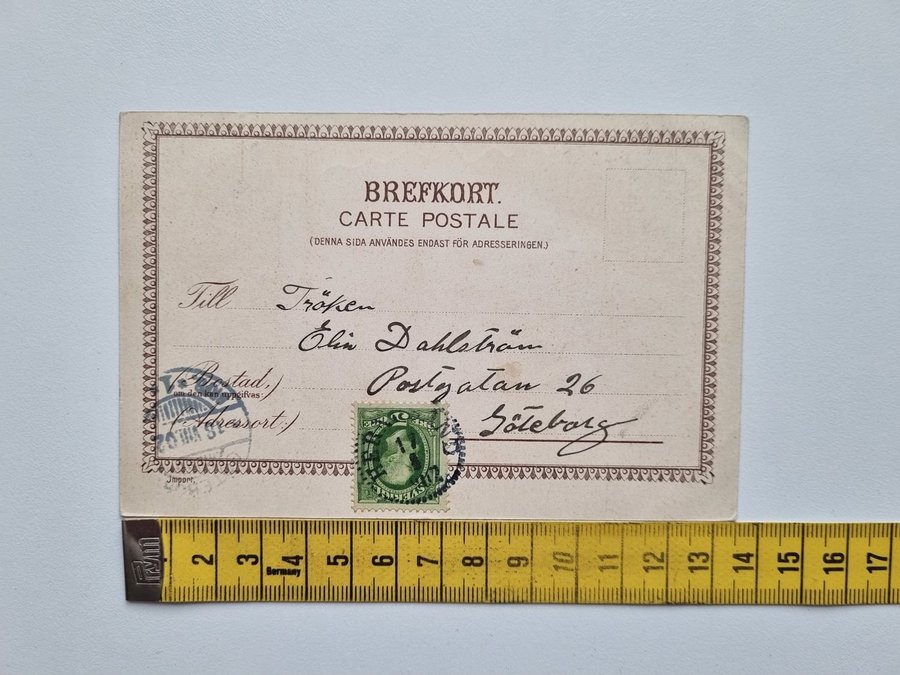 BREFKORT.
CARTE POSTALE
(DENNA SIDA ANVÄNDES ENDAST FÖR ADRESSERINGEN.)
Till Fröken
Elin Dahlström
(Bostad,) Postgatan 26
om den kan uppgifvas
(Adressort:) Göteborg
Import.
SVERIGE
prym
Germany
2 3 4 5 6 7 8 9 10 11 12 13 14 15 16 17